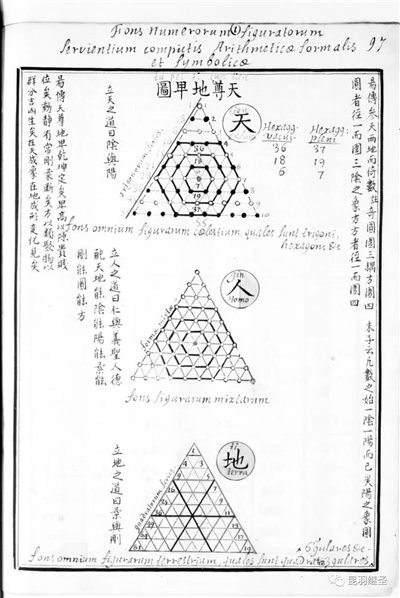 Fons Numerorum & figuratorum
servientium computis Arithmeticæ formalis
et Symbolicæ
97
天尊地卑圖
天
Hexag: vacui
Hexag: pleni
36 37
18 19
6 7
易傳參天兩地而倚數
圓者徑一而圍三陰之象方方者徑一而圍四
朱子云凡數之始一陰一陽而已矣陽之象圓
易傳天尊地卑乾坤定矣卑高以陳貴賤
位矣動靜有常剛柔斷矣方以類聚物以
群分吉凶生矣在天成象在地成形變化見矣
立天之道曰陰與陽
fons omnium figurarum cælestium quales sunt trigoni,
hexagoni &c
人
Homo
立人之道曰仁與義聖人德
能天地能陰能陽能柔能
剛能圓能方
fons figurarum mixtarum
地
terra
立地之道曰柔與剛
fons omnium figurarum terrestrium, quales sunt quadrata,
昆羽继圣